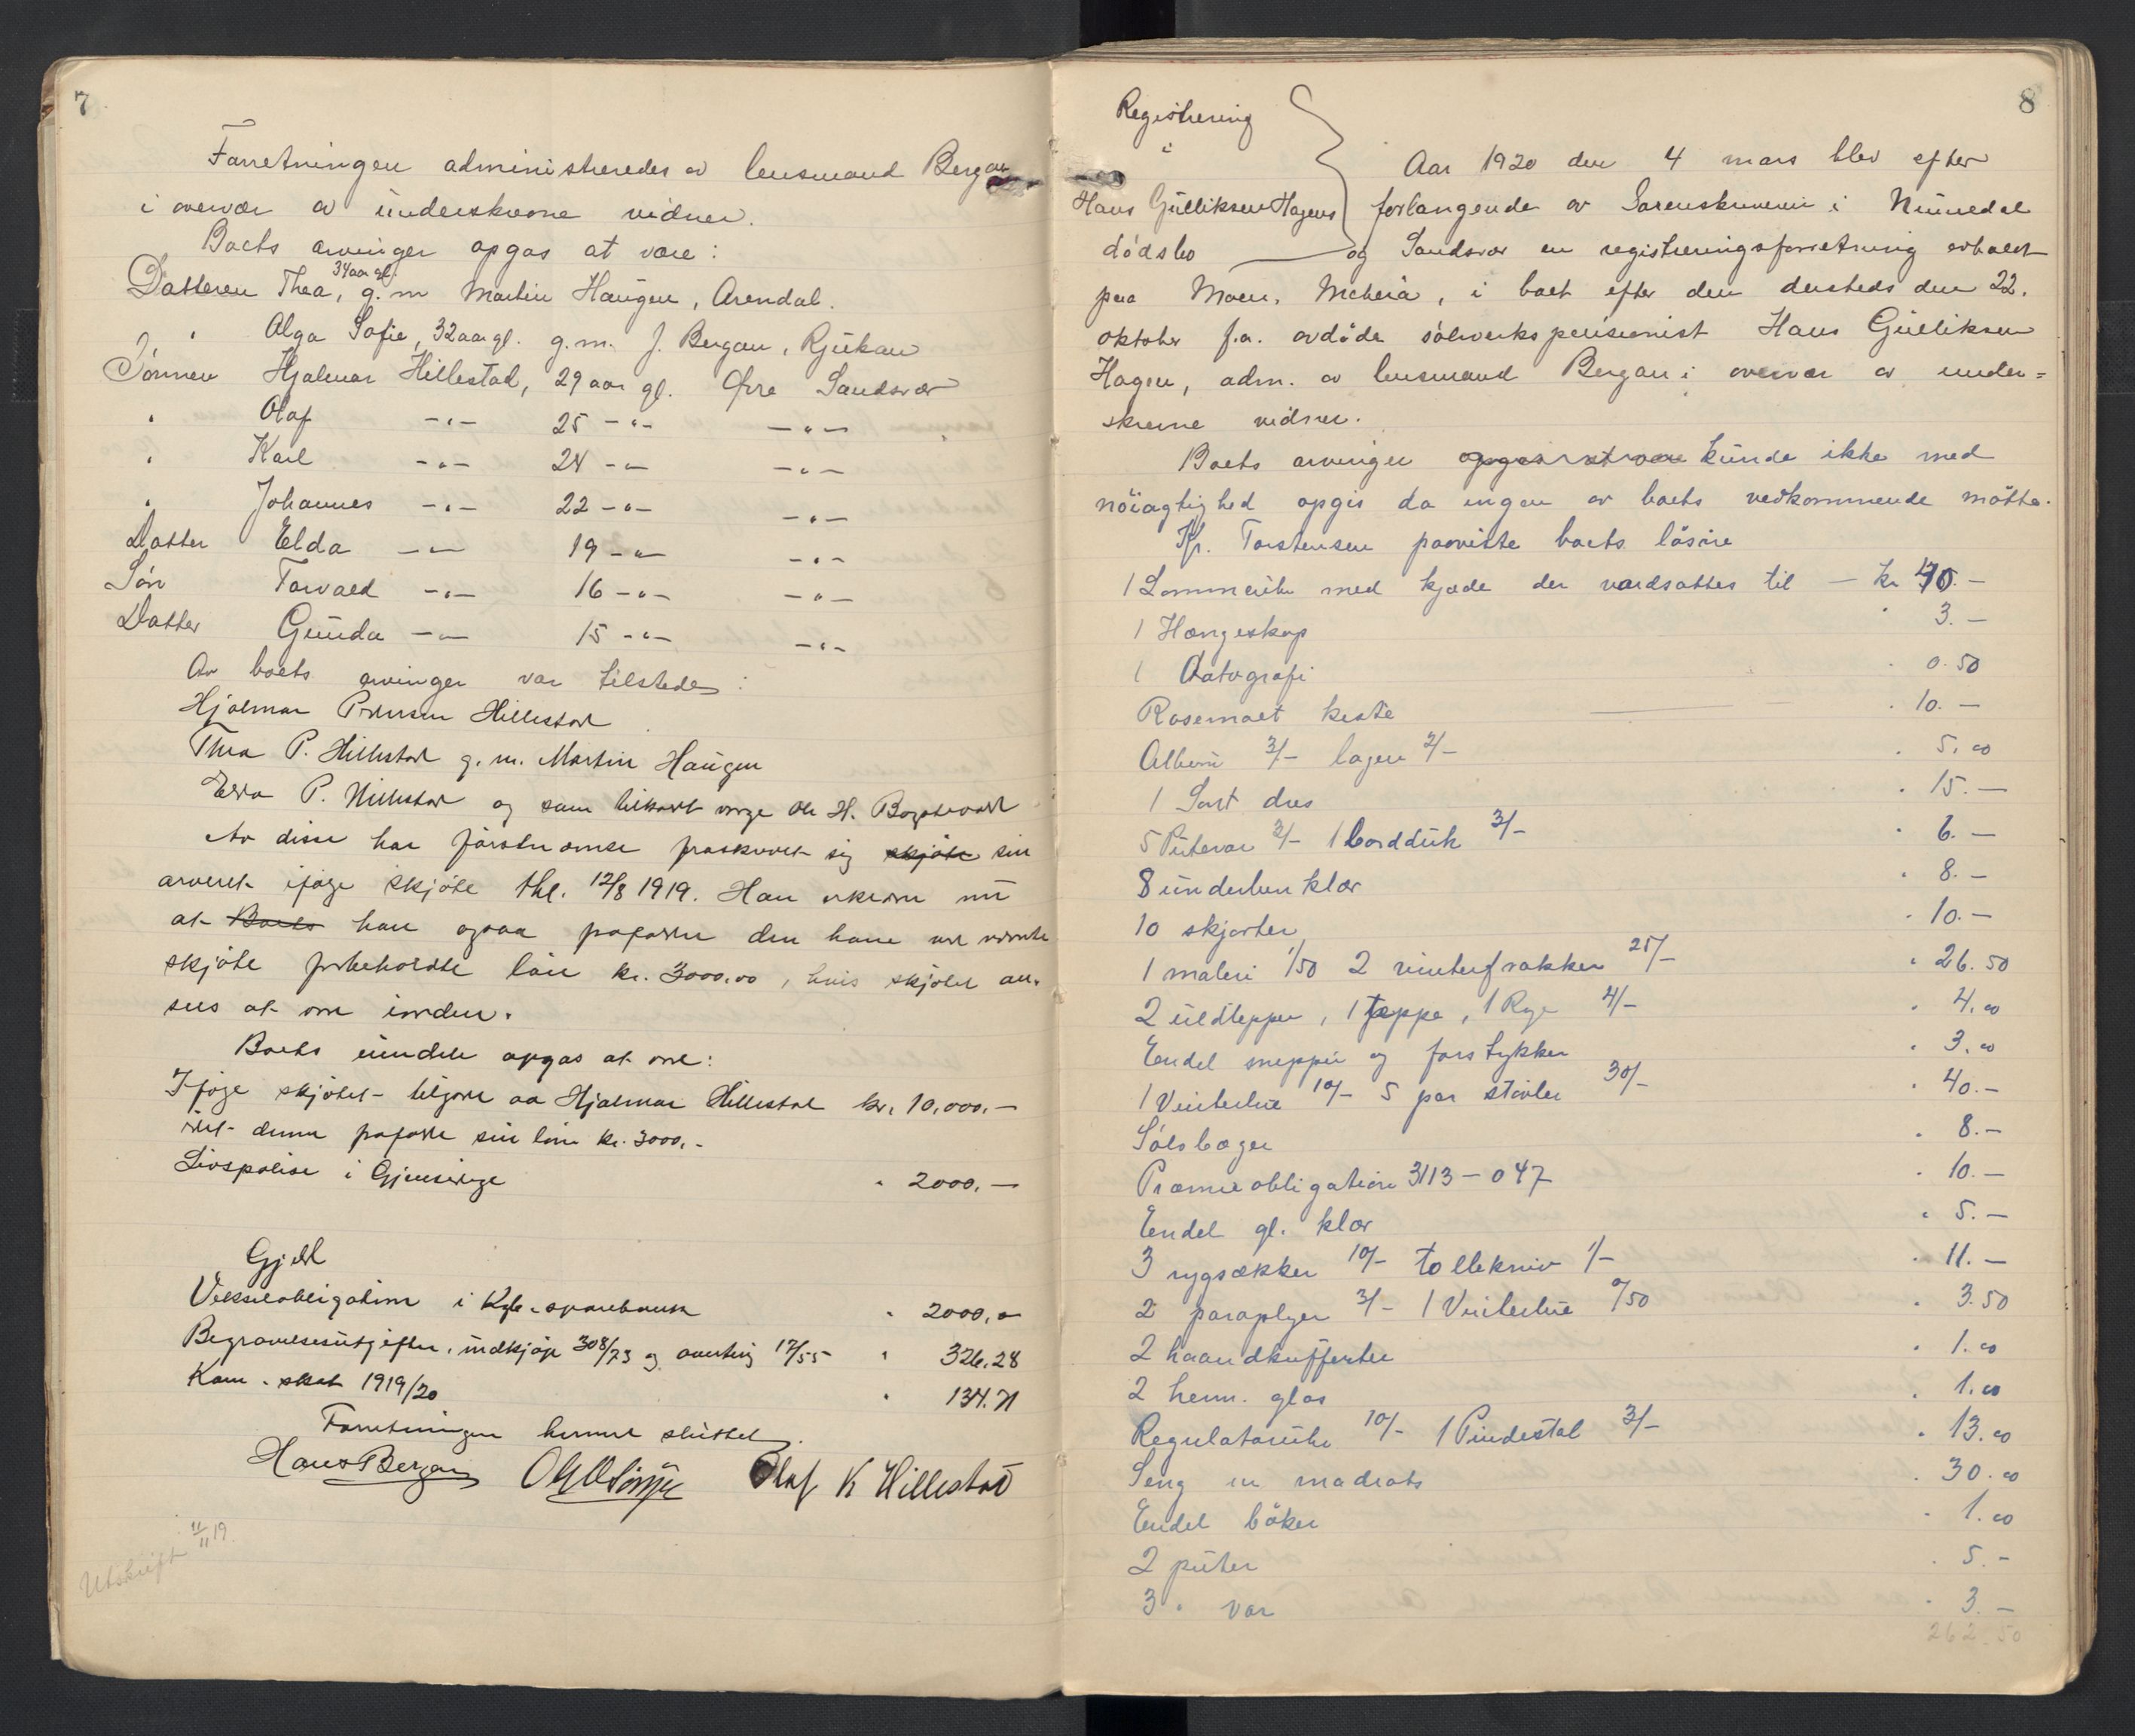 7
Forretningen administreredes av lensmand Bergan
i overvær av underskrevne vidner.
Boets arvinger opgas at være:
34 aar gl.
Datteren Thea, g.m Martin Haugen, Arendal.
" Olga Sofie, 32 aar gl. g.m. J. Bergan, Rjukan
Sønnen Hjalmar Hillestad, 29 aar gl. Øvre Sandsvær
" Olaf -"- 25 -"- -"-
" Karl -"- 24 -"- -"-
" Johannes -"- 22 -"- -"-
Datter Elda -"- 19 -"- -"-
Søn Torvald -"- 16 -"- -"-
Datter Gunda -"- 15 -"- -"-
Av boets arvinger var tilstede:
Hjalmar Pedersen Hillestad
Thea P. Hillestad g.m. Martin Haugen
P. Hillestad og som verge Ole H.
Av disse har førstnævnte fraskrevet sig skjøte sin
arveret ifølge skjøte thl. 12/8 1919. Han erklærer nu
at Boets han ogsaa frafalder den ham ved nævnte
skjøte forbeholdte løn kr. 3000,00, hvis skjøtet an-
sees at være
Boets eiendele opgas at være:
Ifølge skjøtet tilgode aa Hjalmar Hillestad kr. 10,000.-
idet denne frafaldt sin løn kr. 3000.-
Livspolise i Gjensidige " 2000.-
Gjeld
Vekselobligation i Kgb. sparebank " 2000,00
Begravelsesutgifter, indkjøp 308/73 og 17/55 " 326.28
Kom. skat 1919/20 " 134.71
Forretningen hermed sluttet.
Hans Bergan Olaf K Hillestad
Utskrift 11/11 19.
8
Registrering
i
Hans Gulliksen Hagens
dødsbo
Aar 1920 den 4 mars blev efter
forlangende av Sorenskriveren i Numedal
og Sandsvær en registreringsforretning avholdt
paa Moen, Meheia, i boet efter den dersteds den 22.
oktober f.a. avdøde sølverkspensionist Hans Gulliksen
Hagen, adm. av lensmand Bergan i overvær av under=
skrevne vidner.
Boets arvinger opgas at være kunde ikke med
nøiagtighed opgis da ingen av boets vedkommende møtte.
Kr. Torstensen paaviste boets løsøre
1 Lommeuhr med kjæde der værdsattes til - kr 40.-
1 Hængeskap " 3.-
1 Fotografi " 0.50
Rosemalt kiste " 10.-
Album 3/- lagen 2/- " 5.00
1 Sort dres " 15.-
5 Putevar 3/- 1 bordduk 3/- " 6.-
8 underbenklær " 8.-
10 skjorter " 10.-
1 maleri 1/50 2 vinterfrakker 25/- " 26.50
2 uldtepper, 1 teppe, 1 Rye 4/- " 4.00
Endel snepper og forstykker " 3.00
1 Vinterlue 10/- 5 par støvler 30/- " 40.-
Sølvbæger " 8.-
Præmieobligation 3113-047 " 10.-
Endel gl. klær " 5.-
3 rygsækker 10/- tollekniv 1/- " 11.-
2 paraplyer 3/- 1 Vinterlue 0/50 " 3.50
2 haandkufferter " 1.00
2 herm. glas " 1.00
Regulatoruhr 10/- 1 Pindestol 3/- " 13.00
Seng m madrats " 30.00
Endel bøker " 1.00
2 puter " 5.-
3 " var " 3.-
262.50